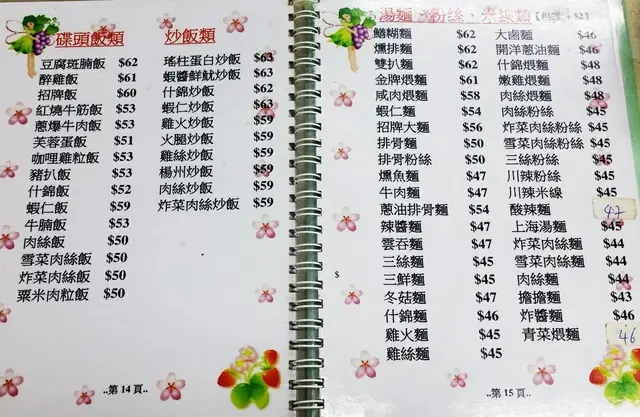 碟頭飯類
豆腐斑腩飯 $62
醉雞飯 $61
招牌飯 $60
紅燒牛筋飯 $53
蔥爆牛肉飯 $53
芙蓉蛋飯 $51
咖哩雞粒飯 $53
豬扒飯 $53
什錦飯 $52
蝦仁飯 $59
牛腩飯 $53
肉絲飯 $50
雪菜肉絲飯 $50
炸菜肉絲飯 $50
粟米肉粒飯 $50
炒飯類
瑤柱蛋白炒飯 $63
蝦醬鮮魷炒飯 $63
什錦炒飯 $62
蝦仁炒飯 $63
雞火炒飯 $59
火腿炒飯 $59
雞絲炒飯 $59
楊州炒飯 $59
肉絲炒飯 $59
炸菜肉絲炒飯 $59
..第14頁..
湯麵、粉絲、米線類
鱔糊麵 $62
燻排麵 $62
雙扒麵 $62
金牌煨麵 $61
咸肉煨麵 $58
蝦仁麵 $54
招牌大麵 $56
排骨麵 $50
排骨粉絲 $50
燻魚麵 $47
牛肉麵 $47
蔥油排骨麵 $54
辣醬麵 $47
雲吞麵 $47
三絲麵 $45
三鮮麵 $45
冬菇麵 $47
什錦麵 $46
雞火麵 $45
雞絲麵 $45
大鹵麵 $46
開洋蔥油麵 $46
什錦煨麵 $48
嫩雞煨麵 $48
肉絲煨麵 $48
肉絲粉絲 $45
炸菜肉絲粉絲 $45
雪菜肉絲粉絲 $45
三絲粉絲 $45
川辣粉絲 $45
川辣米線 $45
酸辣麵 47
上海湯麵 $45
炸菜肉絲麵 $44
雪菜肉絲麵 $44
肉絲麵 $44
擔擔麵 $43
炸醬麵 $46
青菜煨麵 46
..第15頁..